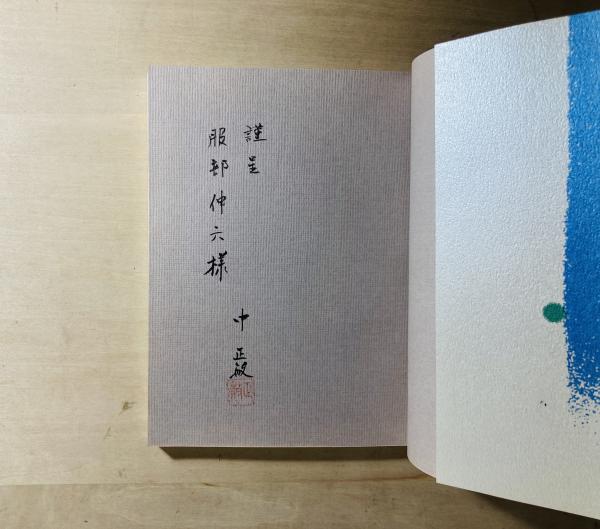 謹呈
服部伸六様
中正敏